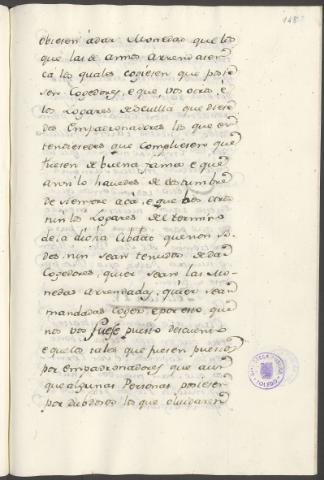 148
obiesen à dar Monedas que los
que las de annos Arrendasen
ca los quales cogiesen que pusie
sen Cogedores, e que vos otros, e
los Logares de Sevilla que diese
des Empadronadores los que en
tendieredes que Complieren que
fuesen de buena fama e que
ansi lo havedes de costumbre
de siempre acá, e que vos otros
nin los Logares del termino
de la dicha Cibdad que non so
des nin sean tenudos de dar
Cogedores, quier sean las Mo
nedas arrendadas, quier sean
mandadas Coger, e por esto que
nos vos fuese puesto descuento
e que los tales que fuesen puestos
por empadronadores que aun
que algunas Personas pusiesen
por dubdosos los que olvidaren
BIBLIOTECA
TOLEDO